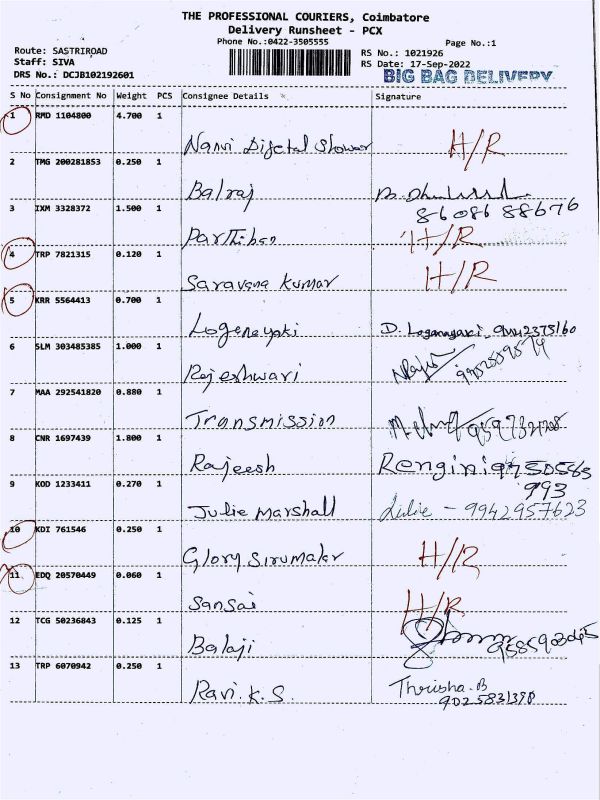 THE PROFESSIONAL COURIERS, Coimbatore
Delivery Runsheet - PCX
Phone No.:0422-3505555
Page No.:1
Route: SASTRIROAD
RS No.: 1021926
Staff: SIVA
RS Date: 17-Sep-2022
DRS No.: DCJB102192601
BIG BAG DELIVERY
S No Consignment No Weight PCS Consignee Details Signature
1 RMD 1104800 4.700 1
Nanvi Digetal Showar H/R
2 TMG 200281853 0.250 1
Balraj
8608688676
3 IXM 3328372 1.500 1
Parthiban H/R
4 TRP 7821315 0.120 1
Saravana Kumar H/R
5 KRR 5564413 0.700 1
Logenayaki D. Loganayaki
6 SLM 303485385 1.000 1
Rajeshwari
7 MAA 292541820 0.880 1
Transmission
8 CNR 1697439 1.800 1
Rajeesh Rengini 9750583
993
9 KOD 1233411 0.270 1
Julie Marshall Julie - 9942957623
10 KDI 761546 0.250 1
Glory Sirumaler H/R
11 EDQ 20570449 0.060 1
Sansai H/R
12 TCG 50236843 0.125 1
Balaji
13 TRP 6070942 0.250 1
Ravi.K.S. Thrisha.B
9025831390